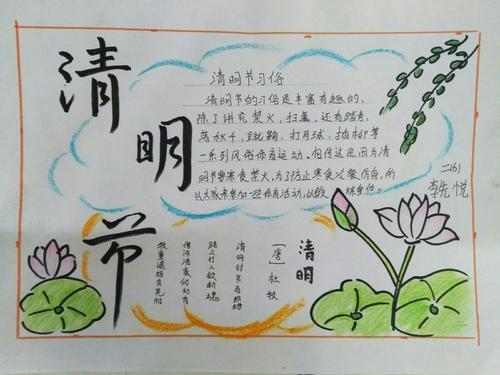 清明节
清明节习俗
清明节的习俗是丰富有趣的,
除了讲究禁火,扫墓,还有踏青,
荡秋千,蹴鞠,打马球,插柳等
一系列风俗体育运动。相传这是因为清
明节要寒食禁火,为了防止寒食冷餐伤身,所
以大家来参加一些体育活动,以锻炼身体。
二(6)
李先悦
清明
[唐] 杜牧
清明时节雨纷纷
路上行人欲断魂
借问酒家何处有
牧童遥指杏花村